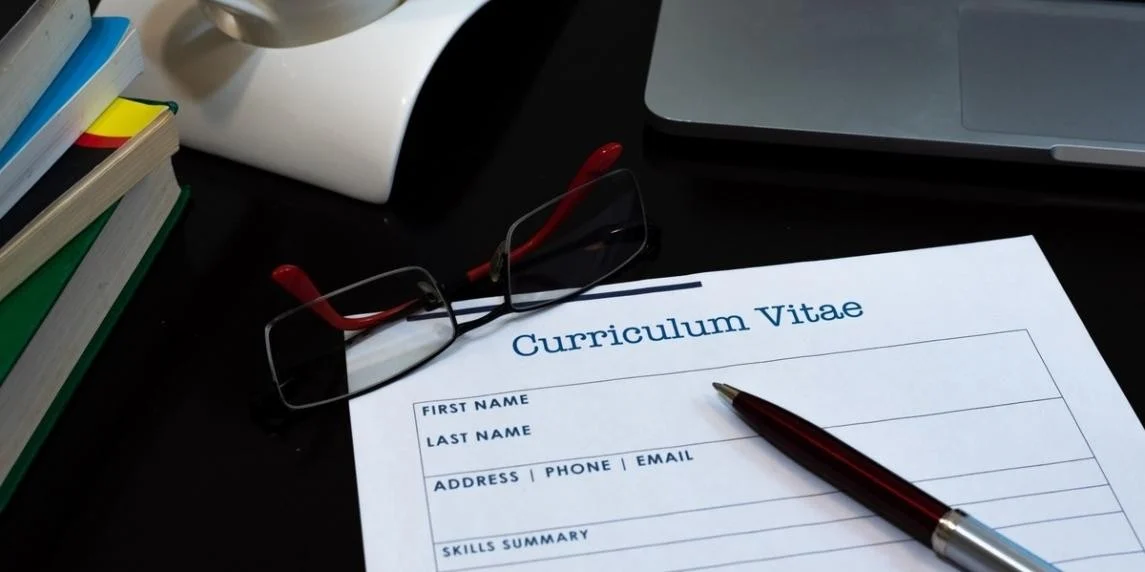 Curriculum Vitae
FIRST NAME
LAST NAME
ADDRESS | PHONE | EMAIL
SKILLS SUMMARY